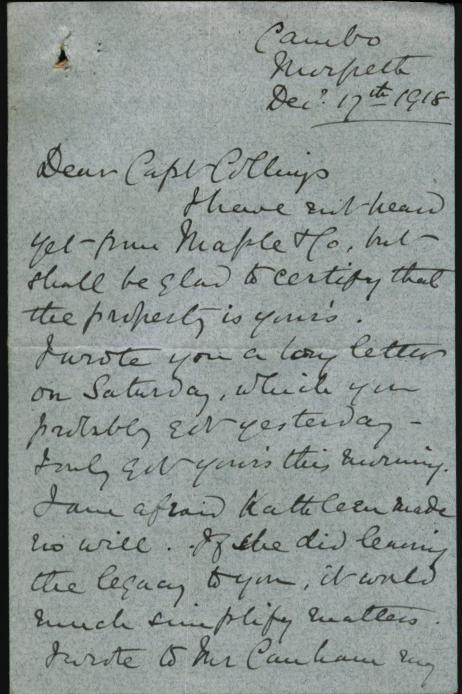 Cambo
Morpeth
Decr. 17th 1918
Dear Capt Collings
I have not heard
yet from Maple & Co, but
shall be glad to certify that
the property is your's.
I wrote you a long letter
on Saturday, which you
probably got yesterday -
I only got your's this morning.
I am afraid Kathleen made
no will. If she did leaving
the legacy to you, it would
much simplify matters.
I wrote to Mr Canham my